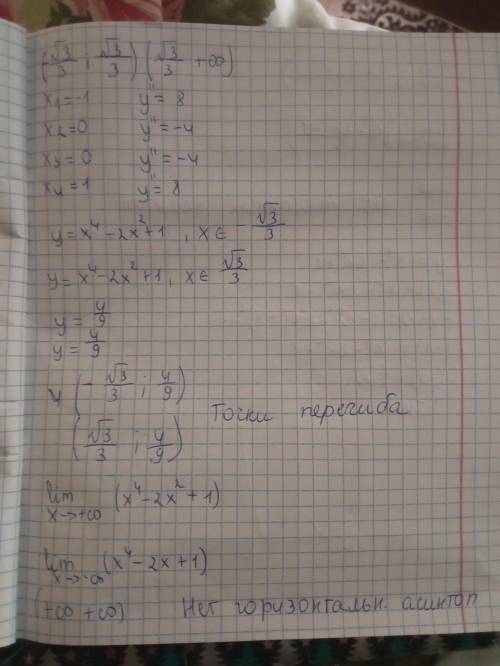 (√3/3 ; √3/3) (√3/3 +∞)
x1=-1 y"= 8
x2=0 y"=-4
x3=0 y"=-4
x4=1 y"= 8
y=x⁴-2x²+1 , x∈ -√3/3
y=x⁴-2x²+1, x∈ √3/3
y=4/9
y=4/9
y (-√3/3 ; 4/9)
(√3/3 ; 4/9) Точки перегиба
lim x→+∞ (x⁴-2x²+1)
lim x→-∞ (x⁴-2x+1)
(+∞ +∞) Нет горизонтальн. асимтоп